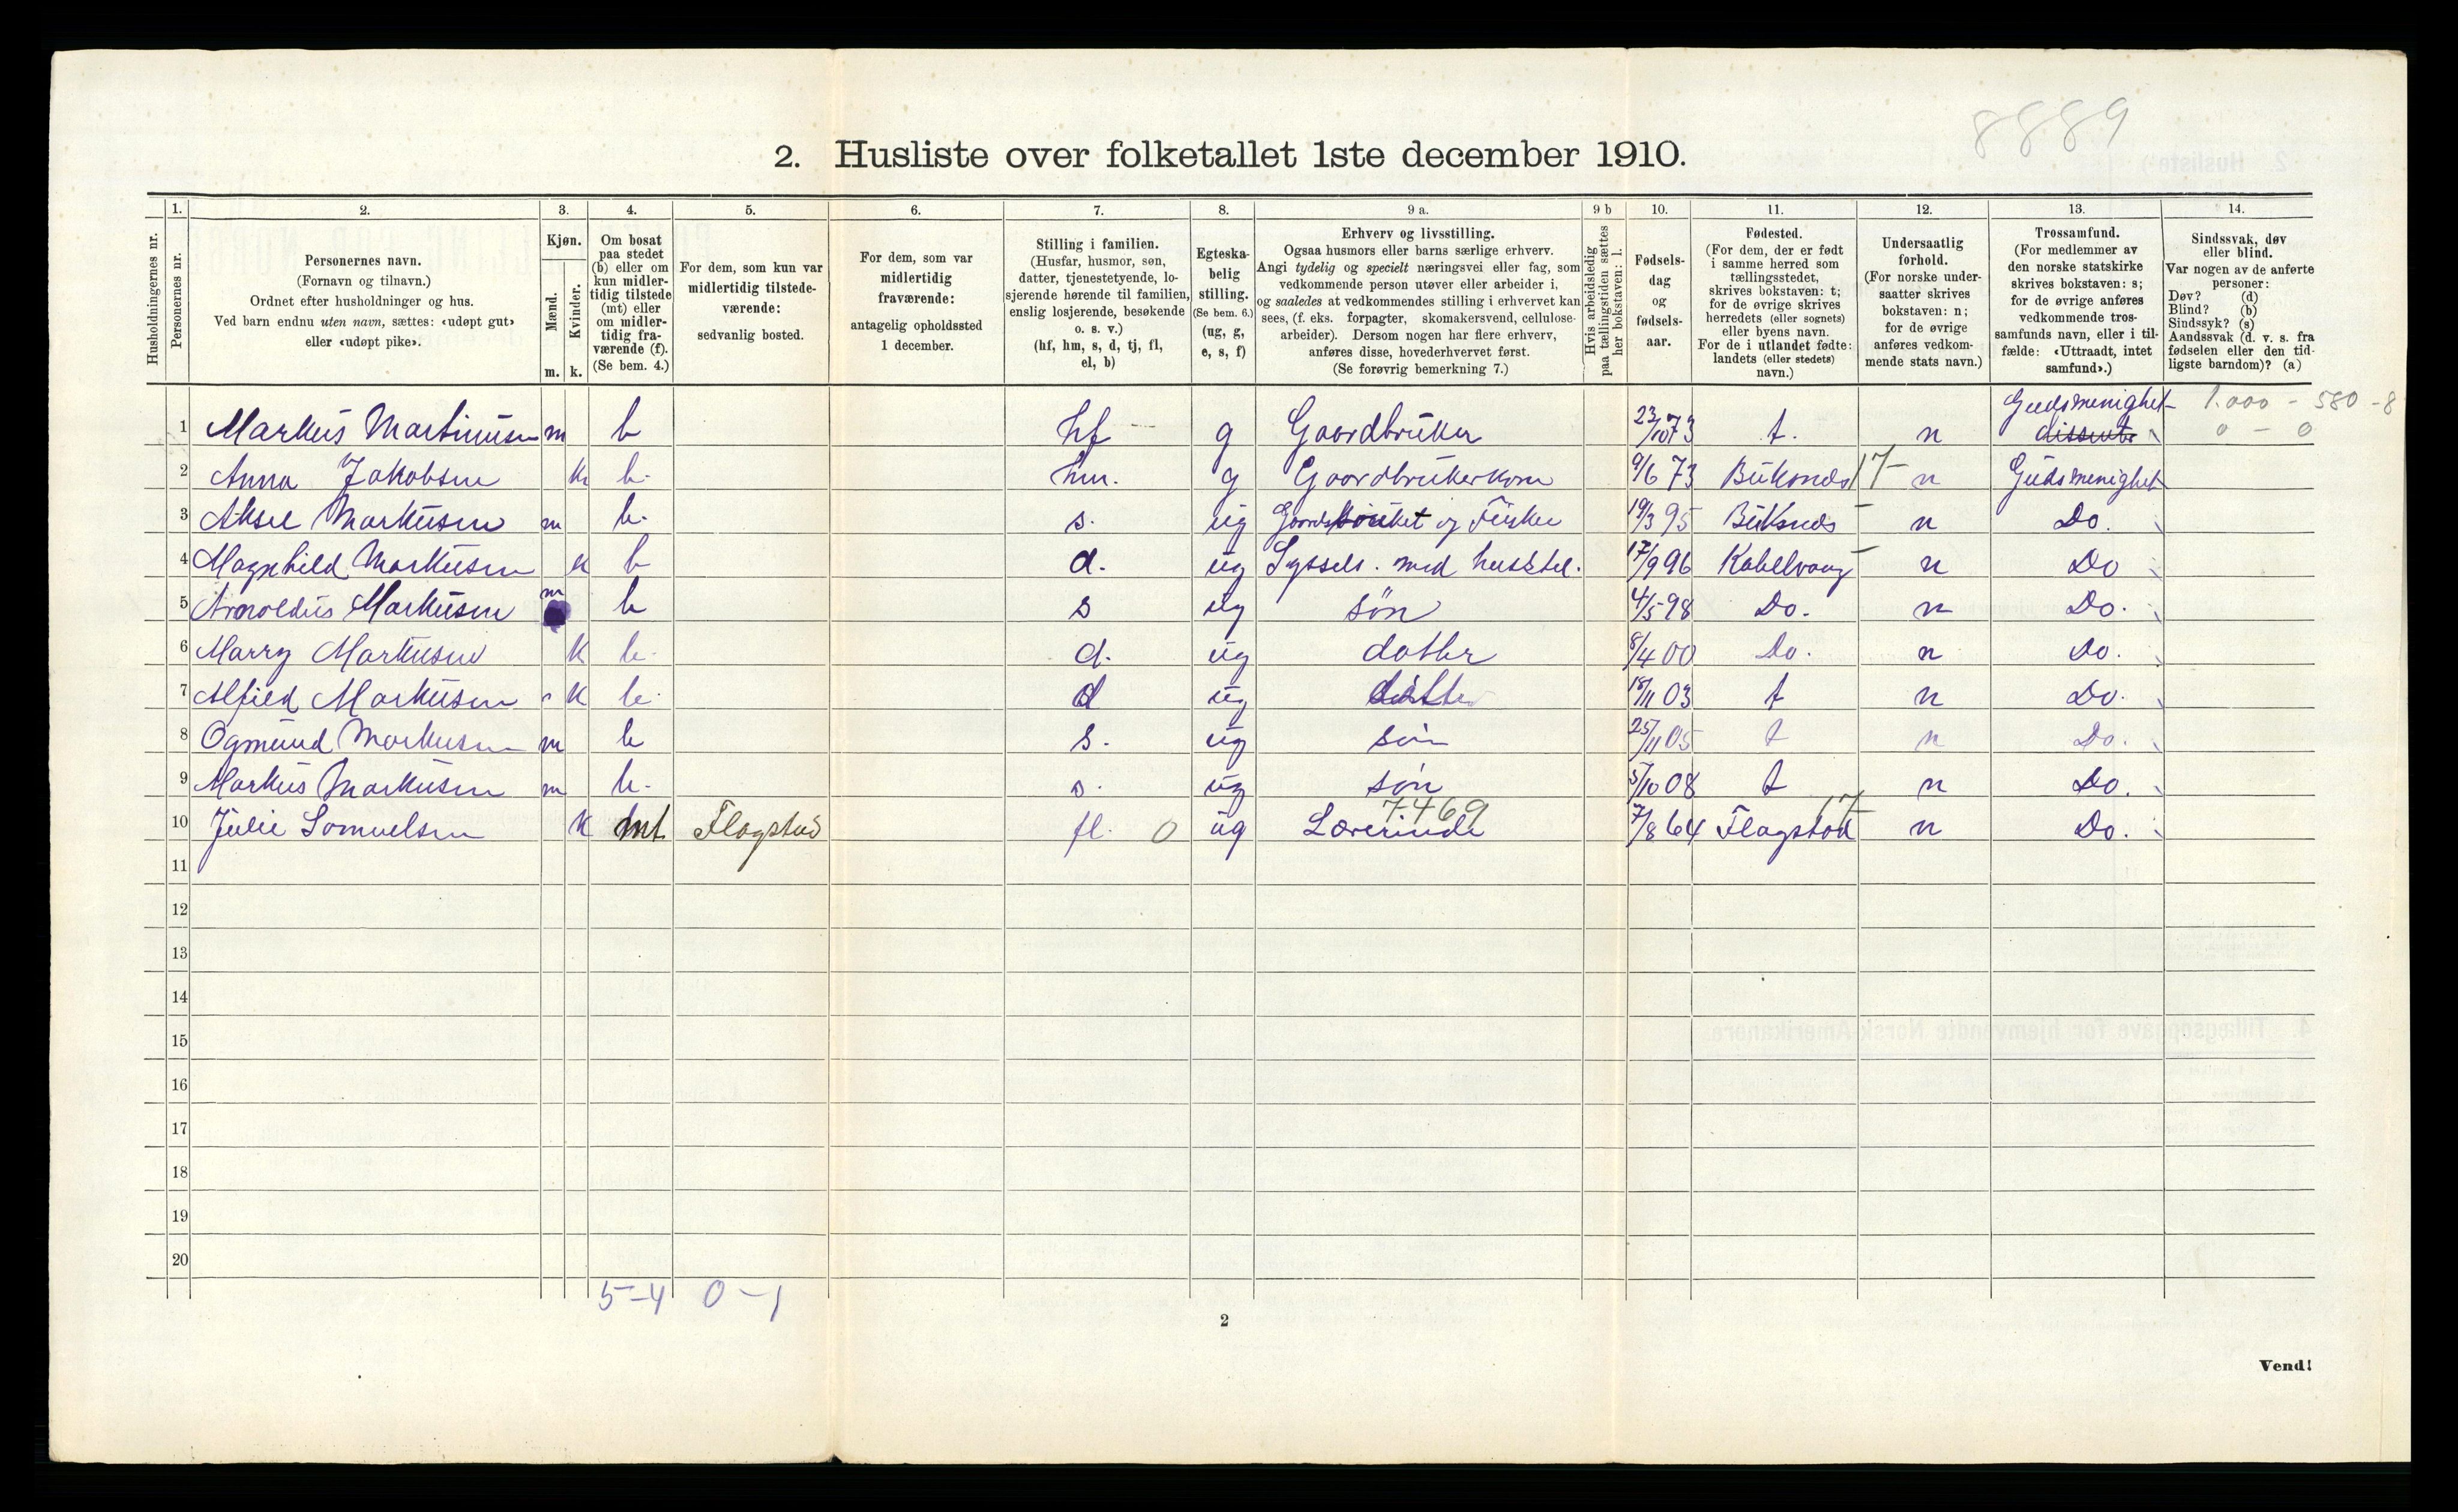 8889
2. Husliste over folketallet 1ste december 1910.
Husholdningernes nr.
1. Personernes nr.
2. Personernes navn.
(Fornavn og tilnavn.)
Ordnet efter husholdninger og hus.
Ved barn endnu uten navn, sættes: «udøpt gut»
eller «udøpt pike».
3. Kjøn.
Mænd. m.
Kvinder. k.
4. Om bosat
paa stedet
(b) eller om
kun midler-
tidig tilstede
(mt) eller
om midler-
tidig fra-
værende (f).
(Se bem. 4.)
5. For dem, som kun var
midlertidig tilstede-
værende:
sedvanlig bosted.
6. For dem, som var
midlertidig
fraværende:
antagelig opholdssted
1 december.
7. Stilling i familien.
(Husfar, husmor, søn,
datter, tjenestetyende, lo-
sjerende hørende til familien,
enslig losjerende, besøkende
o. s. v.)
(hf, hm, s, d, tj, fl,
el, b)
8. Egteska-
belig
stilling.
(Se bem. 6.)
(ug, g,
e, s, f)
9 a. Erhverv og livsstilling.
Ogsaa husmors eller barns særlige erhverv.
Angi tydelig og specielt næringsvei eller fag, som
vedkommende person utøver eller arbeider i,
og saaledes at vedkommendes stilling i erhvervet kan
sees, (f. eks. forpagter, skomakersvend, cellulose-
arbeider). Dersom nogen har flere erhverv,
anføres disse, hovederhvervet først.
(Se forøvrig bemerkning 7.)
9 b Hvis arbeidsledig
paa tællingstiden sættes
her bokstaven: l.
10. Fødsels-
dag
og
fødsels-
aar.
11. Fødested.
(For dem, der er født
i samme herred som
tællingsstedet,
skrives bokstaven: t;
for de øvrige skrives
herredets (eller sognets)
eller byens navn.
For de i utlandet fødte:
landets (eller stedets)
navn.)
12. Undersaatlig
forhold.
(For norske under-
saatter skrives
bokstaven: n;
for de øvrige
anføres vedkom-
mende stats navn.)
13. Trossamfund.
(For medlemmer av
den norske statskirke
skrives bokstaven: s;
for de øvrige anføres
vedkommende tros-
samfunds navn, eller i til-
fælde: «Uttraadt, intet
samfund».)
14. Sindssvak, døv
eller blind.
Var nogen av de anførte
personer:
Døv? (d)
Blind? (b)
Sindssyk? (s)
Aandssvak (d. v. s. fra
fødselen eller den tid-
ligste barndom)? (a)
1 Markus Martinusen m b hf g Gaardbruker 23/10 73 t. n Gudsmenighet dissenter 1.000 - 580 - 8
0 - 0
2 Anna Jakobsen k b. hm. g Gaardbrukerkone 9/6 73 Buksnes 17 n Gudsmenighet
3 Aksel Markusen m b. s. ug Gaardsbruket og Fisker 19/3 95 Buksnes n Do.
4 Magnhild Markusen k b d. ug Syssels. med husstel. 17/9 96 Kabelvaag n Do
5 Arnoldus Markusen m b s ug søn 4/5 98 Do. n Do.
6 Marry Markusen k b. d. ug datter 8/4 00 Do. n Do.
7 Alfild Markusen k b. d ug datter 18/11 03 t n Do.
8 Ogmund Markusen m b s. ug søn 25/11 05 t n Do.
9 Markus Markusen m b. s. ug søn 5/10 08 t n Do.
10 Julie Samuelsen k mt Flagstad fl. 0 ug Lærerinde 7469 7/8 64 Flagstad 17 n Do.
11
12
13
14
15
16
17
18
19
20
5-4 0-1
2
Vend!